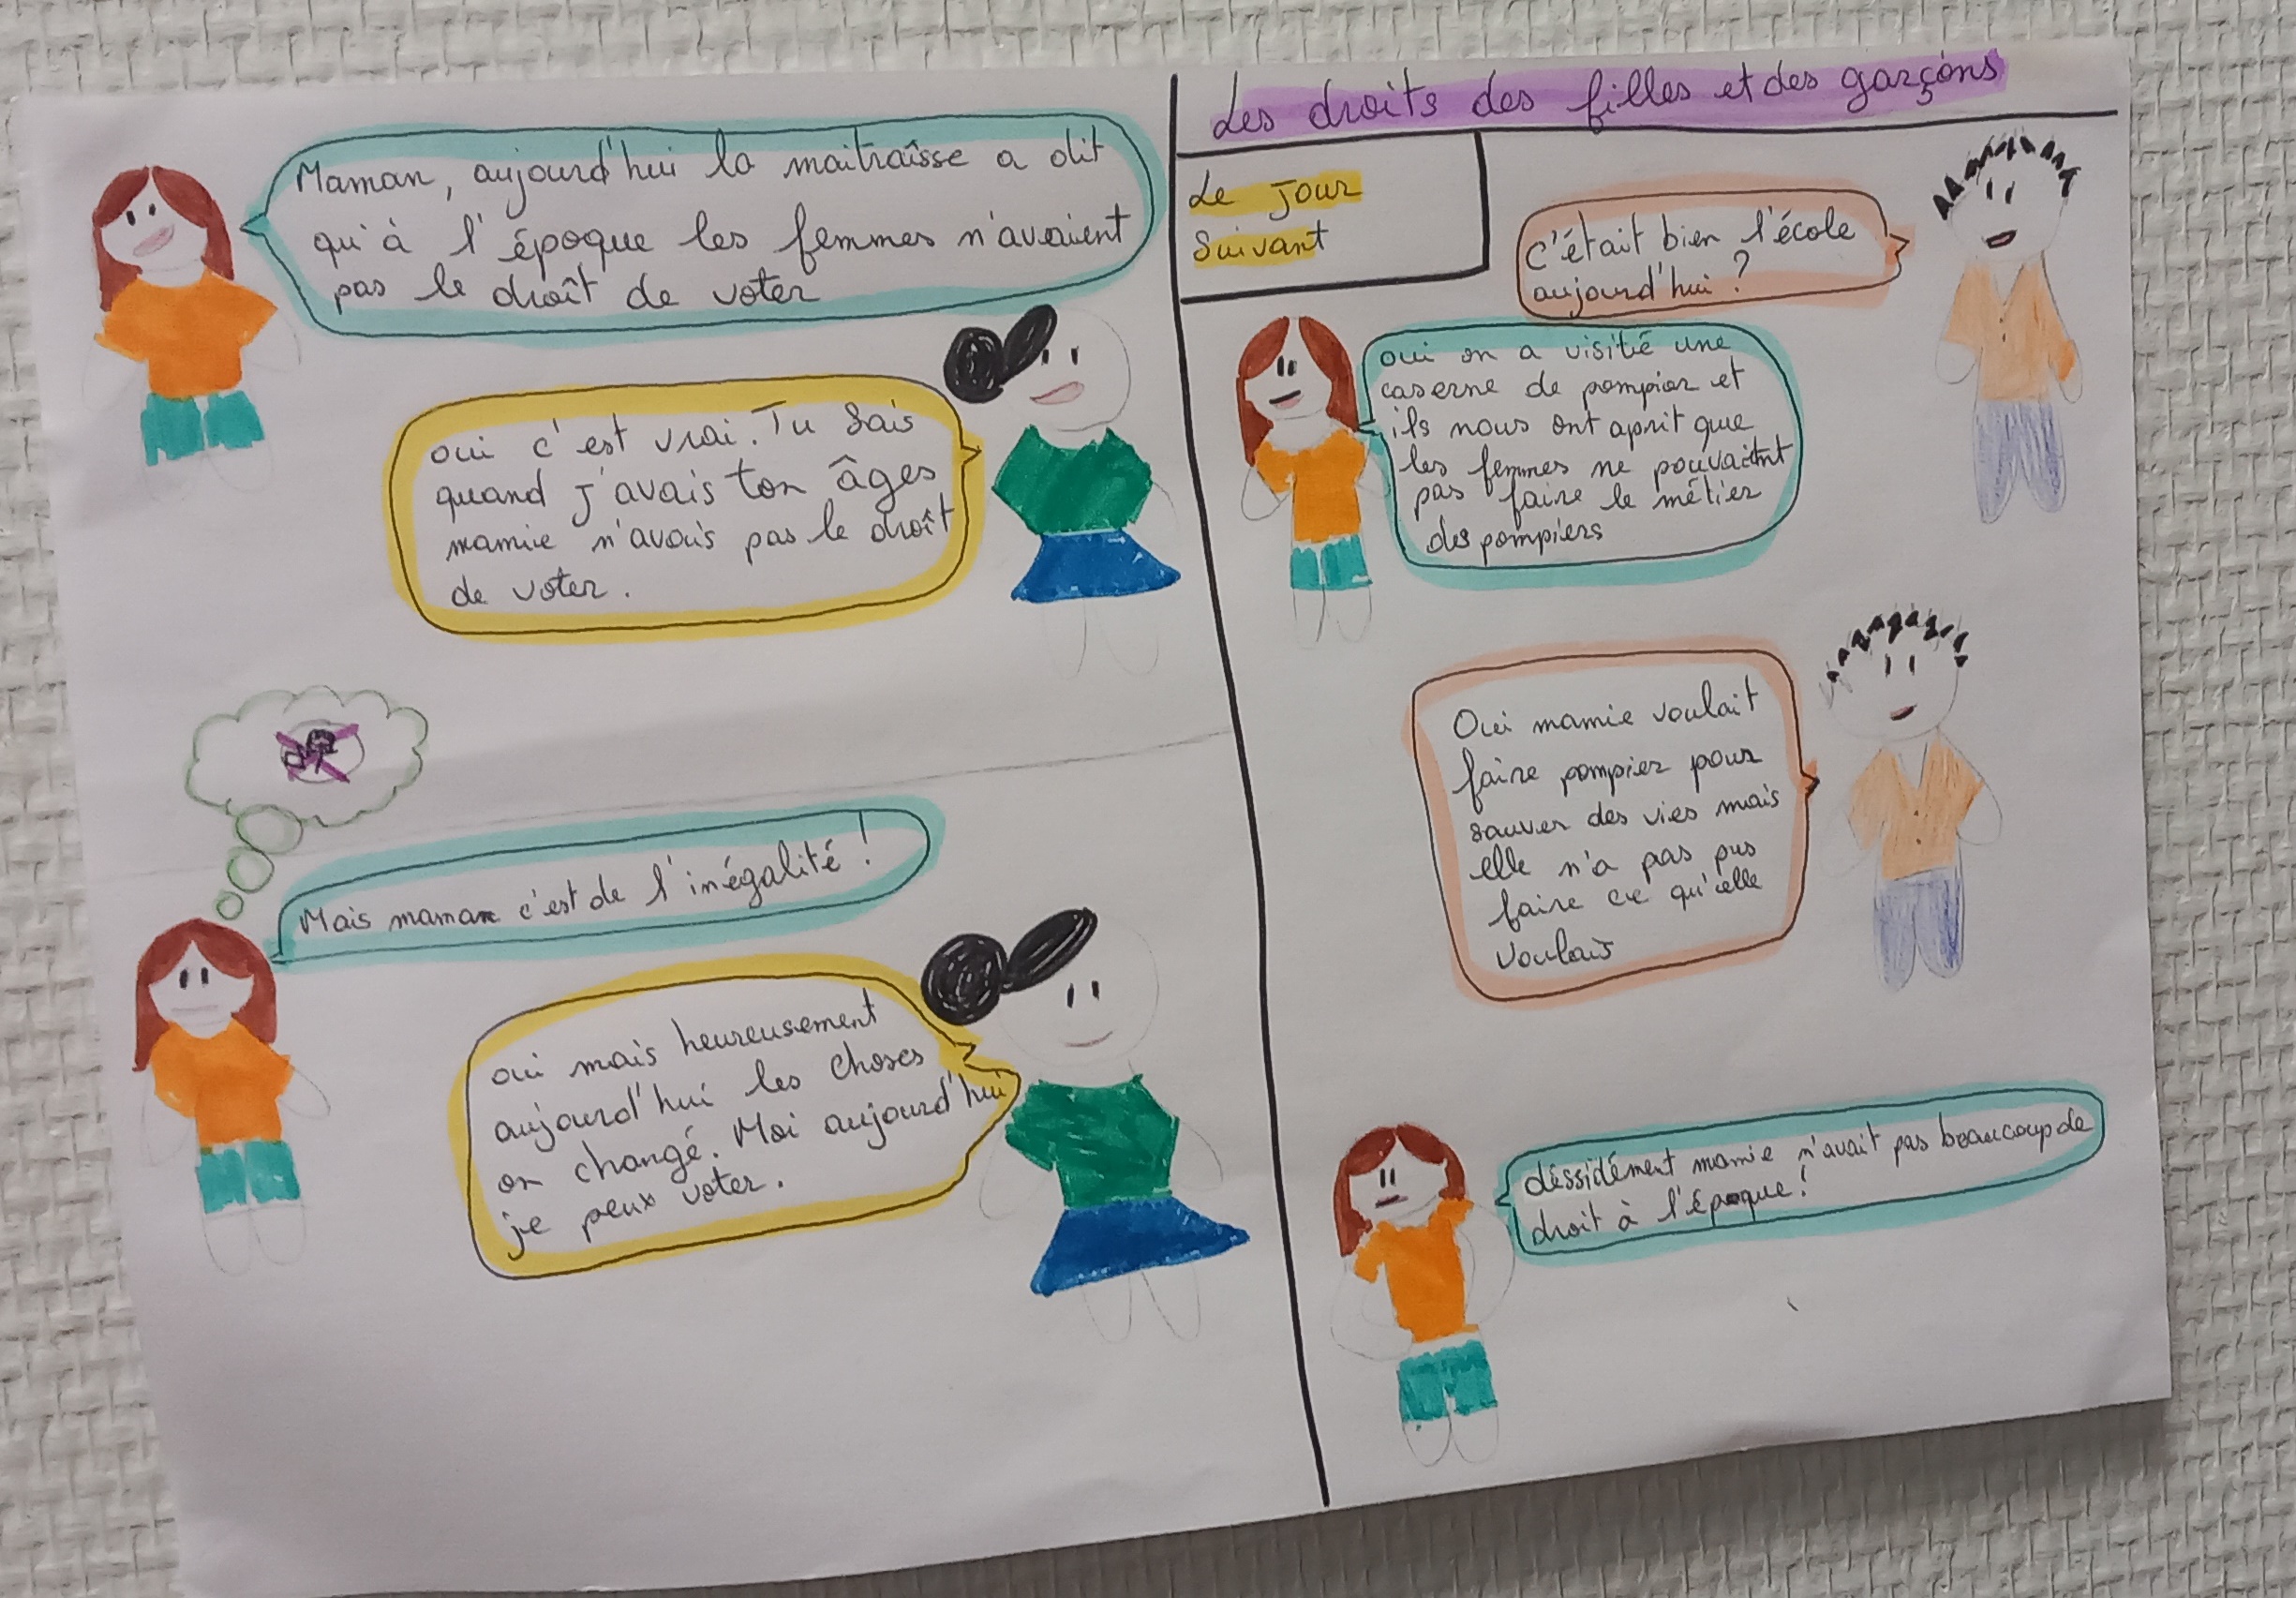 Maman, aujourd'hui la maitraîsse a dit
qu'à l'époque les femmes n'avaient
pas le droît de voter
oui c'est vrai. Tu sais
quand j'avais ton âges
mamie n'avais pas le droît
de voter.
Mais maman c'est de l'inégalité !
oui mais heureusement
aujourd'hui les choses
on changé. Moi aujourd'hui
je peux voter.
Les droits des filles et des garçons
Le jour
suivant
c'était bien l'école
aujourd'hui ?
oui on a visitié une
caserne de pompier et
ils nous ont aprit que
les femmes ne pouvaient
pas faire le métier
des pompiers
Oui mamie voulait
faire pompier pour
sauver des vies mais
elle n'a pas pus
faire ce qu'elle
voulais
déssidément mamie n'avait pas beaucoup de
droit à l'époque !